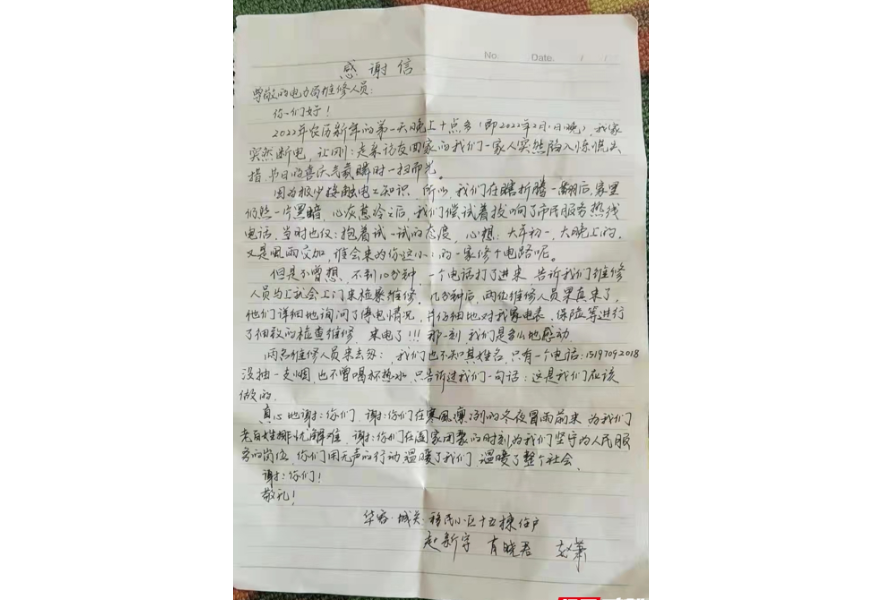 No.
Date. / /
感谢信
尊敬的电力局维修人员:
你们好!
2022年农历新年的第一天晚上十点多(即2022年2月1日晚),我家
突然断电,让刚:走亲访友回家的我们一家人突然陷入惊慌失
措,节日的喜庆气氛瞬时一扫而光。
因为很少接触电工知识,所以我们在瞎折腾一翻后,家里
仍然一片黑暗,心灰意冷之后,我们偿试着拨响了市民服务热线
电话,当时也仅:抱着试一试的态度,心想:大年初一,大晚上的,
又是风雨交加,谁会来为你这小:的一家修个电路呢。
但是不曾想,不到10分钟,一个电话打了进来,告诉我们维修
人员马上就会上门来检察维修,几分钟后,两位维修人员果真来了,
他们详细地询问了停电情况,并仔细地对我家电表,保险等进行
了细致的检查维修,来电了!!!那一刻我们是多么地感动.
两名维修人员来去匆:,我们也不知其姓名,只有一个电话:15197092018
没抽一支烟,也不曾喝杯热水,只告诉过我们一句话:这是我们应该
做的.
真心地谢:你们,谢:你们在寒风凛冽的冬夜冒雨前来为我们
老百姓排忧解难,谢:你们在阖家团聚的时刻为我们坚守为人民服
务的岗位,你们用无声的行动温暖了我们,温暖了整个社会.
谢:你们!
敬礼!
华容·城关·移民小区十五栋住户
赵新宇 肖晓君